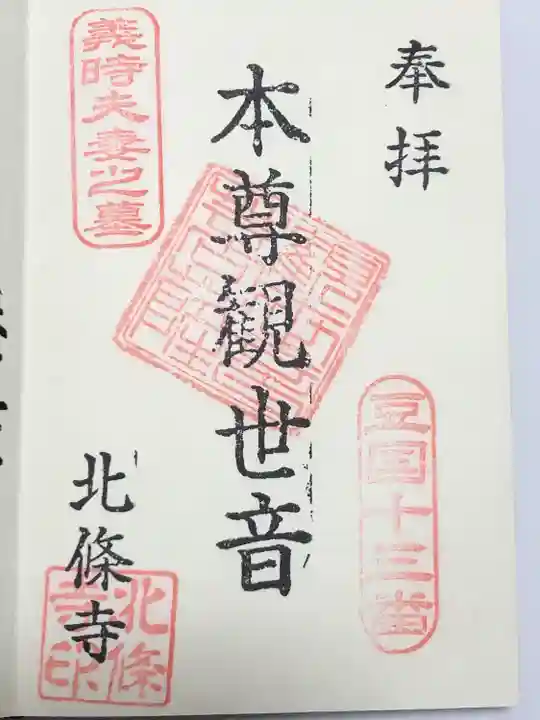 奉拝
豆国十三番
本尊觀世音
義時夫妻之墓
北條寺
北條寺印